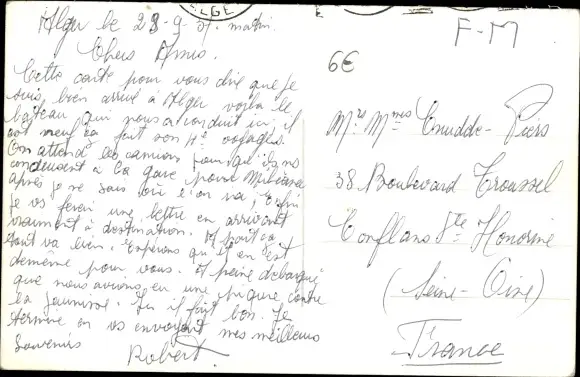 Alger le 28-9-51. matin.
Chers Amis.
Cette carte pour vous dire que je
suis bien arrivé à Alger voila le
bateau qui nous a conduit ici, il
est neuf sa fait son 4e voyage.
On attend les camions pour qu'ils ns
conduisent à la gare pour
après je ne sais où l'on va, Enfin
je vs ferai une lettre en arrivant
vraiment à destination. A part ca
tout va bien. Espérons qu'il en est
de même pour vous. A peine débarqué
que nous avions eu une piqure contre
la jaunisse. Ici il fait bon. Je
termine en vs envoyant mes meilleurs
souvenirs
Robert.
ALGE
F-M
6€
Mr Mmes Cnudde-Piers
38 Boulevard Troussel
Conflans Ste Honorine
(Seine-Oise)
France